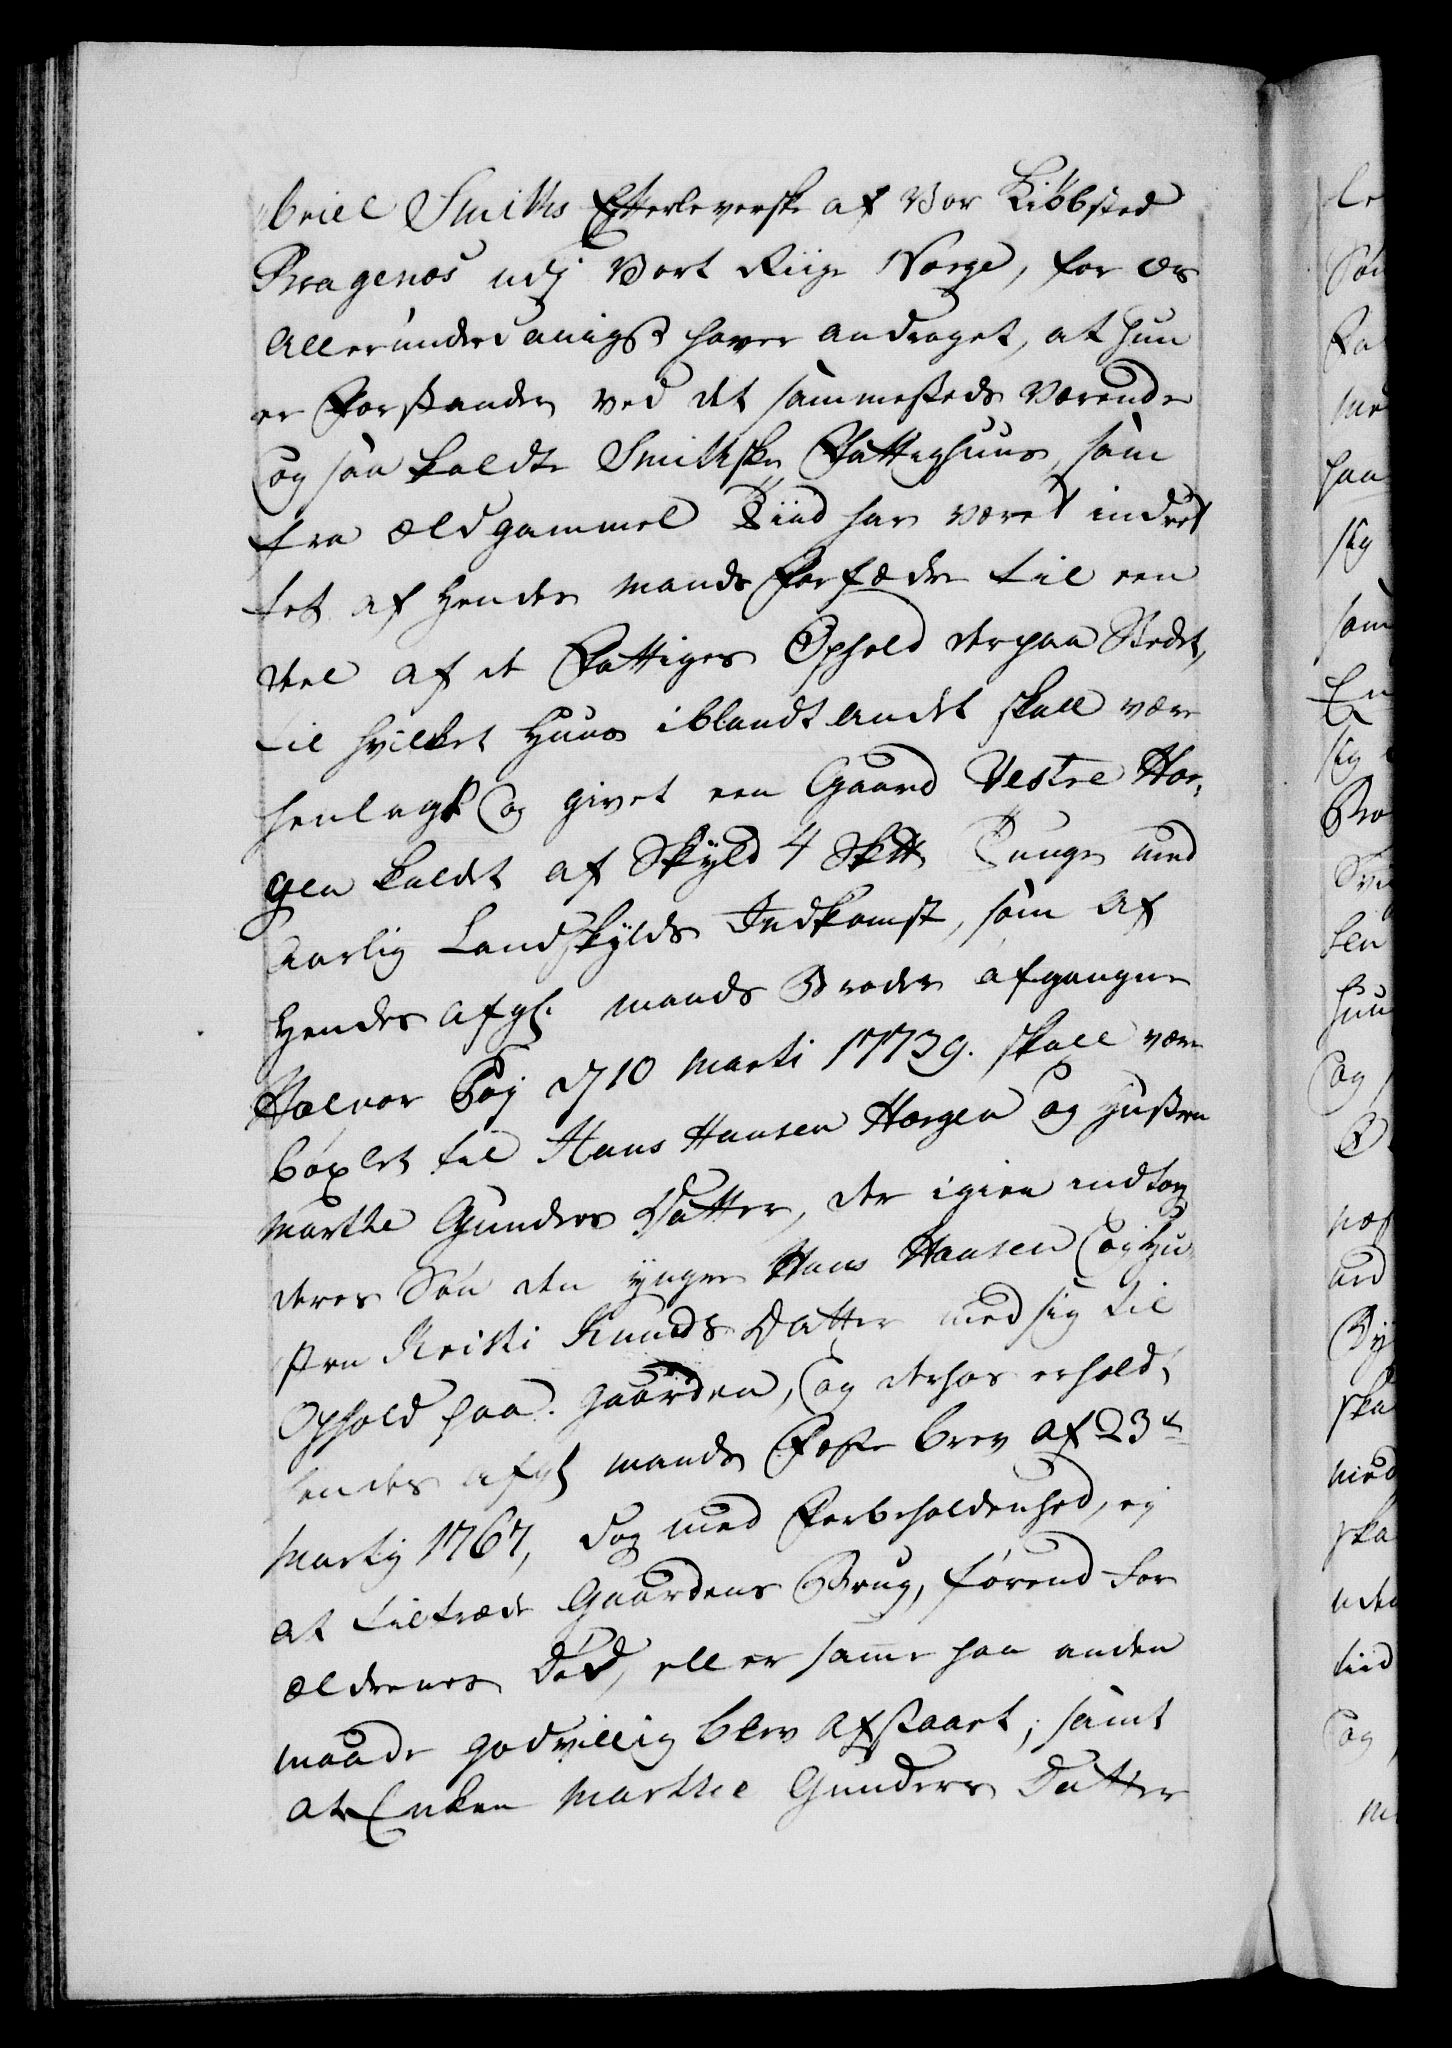 briel Smiths Efterleverske af Vor Kiøbsted
Bragenæs udj Vort Riige Norge, for Os
Allerunderdanigst haver andraget, at hun
er Forstander ved det sammesteds værende
og saa kaldte Smithske Fattighuus, som
fra ældgammel Tiid har været indret
tet af Hendes Mands Forfædre til een
deel af de Fattiges Ophold der paa Stedet,
til hvilket Huus iblandt andet skall være
henlagt og givet een Gaard Vestre Hor-
gen kaldet af Skyld 4 Sktt Tunge med
Aarlig Landskylds Indkomst, som af
Hendes afg. Mands Broder afgangne
Halvor Boy d 10 Marti 17739. skall være
bøxlet til Hans Hansen Horgen og Hustrue
Marthe Gunders Datter, der igien indtog
deres Søn den yngre Hans Hansen og Hu-
strue Kristi Knuds Datter med sig til
Ophold paa Gaarden, og derhos erholdt
hendes afg Mands Fæste brev af 23de
Martij 1767, dog med Forbeholdenhed, ej
at tiltræde Gaardens Brug, førend For
ældrenes Død, eller samme paa anden
maade godvillig blev afstaaet, samt
at Enken Marthe Gunders Datter